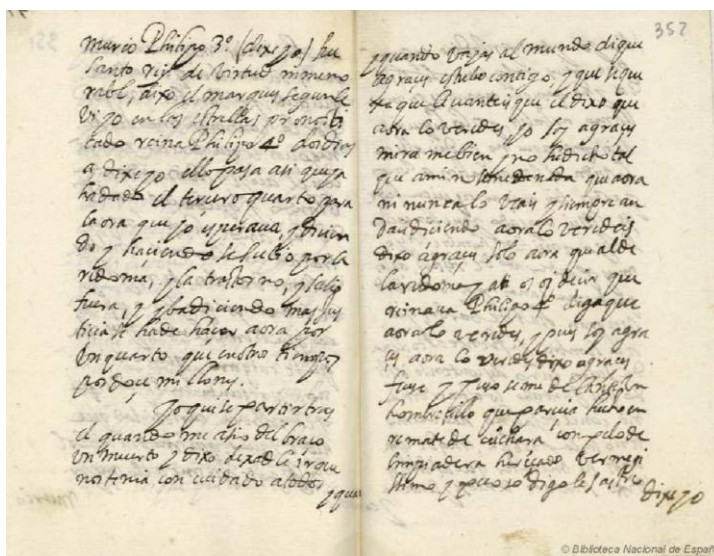 murio Philipo 3º (dixe yo) fue
santo rey de virtud inmemo
rable, dixo el marques segun le
vi yo en las estrellas pronosti
cado reina Philipo 4º dos dias
a dixe yo ello pasa asi que ya
ha dado el tercero quarto para
la ora que yo esperava, y dicien
do y haciendo se subio por la
redoma, y la trastorno, y salio
fuera, y yba diciendo mas jus
ticia se ha de hacer aora por
un quarto que en otros tiempos
por doce millones.
Yo quise partir tras
el quando me asio del braço
un muerto y dixo dexadle ir que
nos tenia con cuidado a todos
y qua
352
y quando vayas al mundo di que
agraes estubo contigo, y que se que
xa que le levanteis que el dixo que
aora lo veredes, yo soy agraes
mira me bien yno he dicho tal
que a mi no se me da nada que aora
ni nunca lo veais y siempre an
dais diciendo aora lo veredeis
dixo agraes, solo aora que al de
la redoma y a ti os oy decir que
reinava Philipo 4º digo que
aora lo veredes, y pues soy agra
es aora lo veredes dixo agraes
fuese y puso se me delante un
hombrecillo que parecia hecho en
remate de cuchara con pelo de
limpiadera herizado bermegi
ssimo y pecoso digole sastre
dixe yo
© Biblioteca Nacional de España